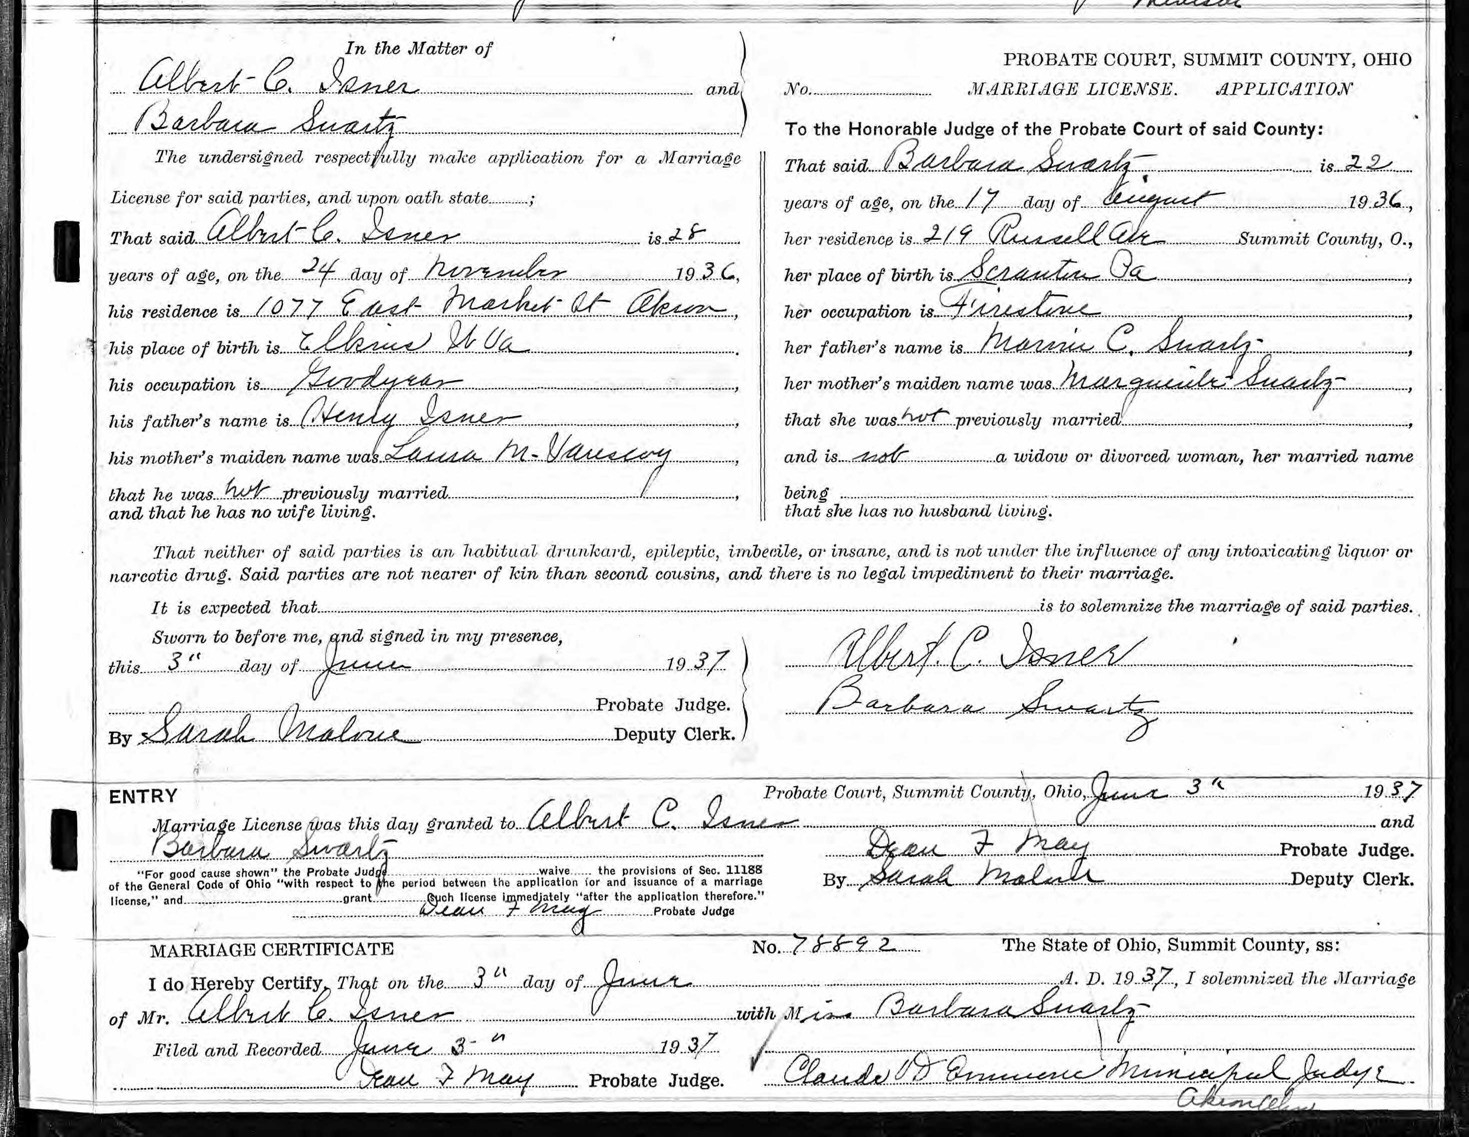 In the Matter of
Albert C. Isner and
Barbara Swartz
The undersigned respectfully make application for a Marriage
License for said parties, and upon oath state ;
That said Albert C. Isner is 28
years of age, on the 24 day of November 1936,
his residence is 1077 East Market St Akron,
his place of birth is Elkins W Va.
his occupation is Goodyear,
his father's name is Henry Isner,
his mother's maiden name was Laura M.
that he was not previously married,
and that he has no wife living.
PROBATE COURT, SUMMIT COUNTY, OHIO
No. MARRIAGE LICENSE. APPLICATION
To the Honorable Judge of the Probate Court of said County:
That said Barbara Swartz is 22
years of age, on the 17 day of August 1936,
her residence is 219 Russell Ave Summit County, O.,
her place of birth is Scranton Pa,
her occupation is Firestone,
her father's name is C. Swartz,
her mother's maiden name was Swartz,
that she was not previously married,
and is not a widow or divorced woman, her married name
being
that she has no husband living.
That neither of said parties is an habitual drunkard, epileptic, imbecile, or insane, and is not under the influence of any intoxicating liquor or
narcotic drug. Said parties are not nearer of kin than second cousins, and there is no legal impediment to their marriage.
It is expected that is to solemnize the marriage of said parties.
Sworn to before me, and signed in my presence,
this 3" day of June 1937
Probate Judge.
By Sarah Malone Deputy Clerk.
Albert. C. Isner
Barbara Swartz
ENTRY Probate Court, Summit County, Ohio, June 3" 1937
Marriage License was this day granted to Albert C. Isner and
Barbara Swartz
"For good cause shown" the Probate Judge waive the provisions of Sec. 11188
of the General Code of Ohio "with respect to the period between the application for and issuance of a marriage
license," and grant such license immediately "after the application therefore."
Dean F May Probate Judge
Dean F May Probate Judge.
By Sarah Malone Deputy Clerk.
MARRIAGE CERTIFICATE No. 78892 The State of Ohio, Summit County, ss:
I do Hereby Certify, That on the 3" day of June A. D. 1937, I solemnized the Marriage
of Mr. Albert C. Isner with Miss Barbara Swartz
Filed and Recorded June 3" 1937
Dean F May Probate Judge.
Claude Municipal Judge
Akron Ohio